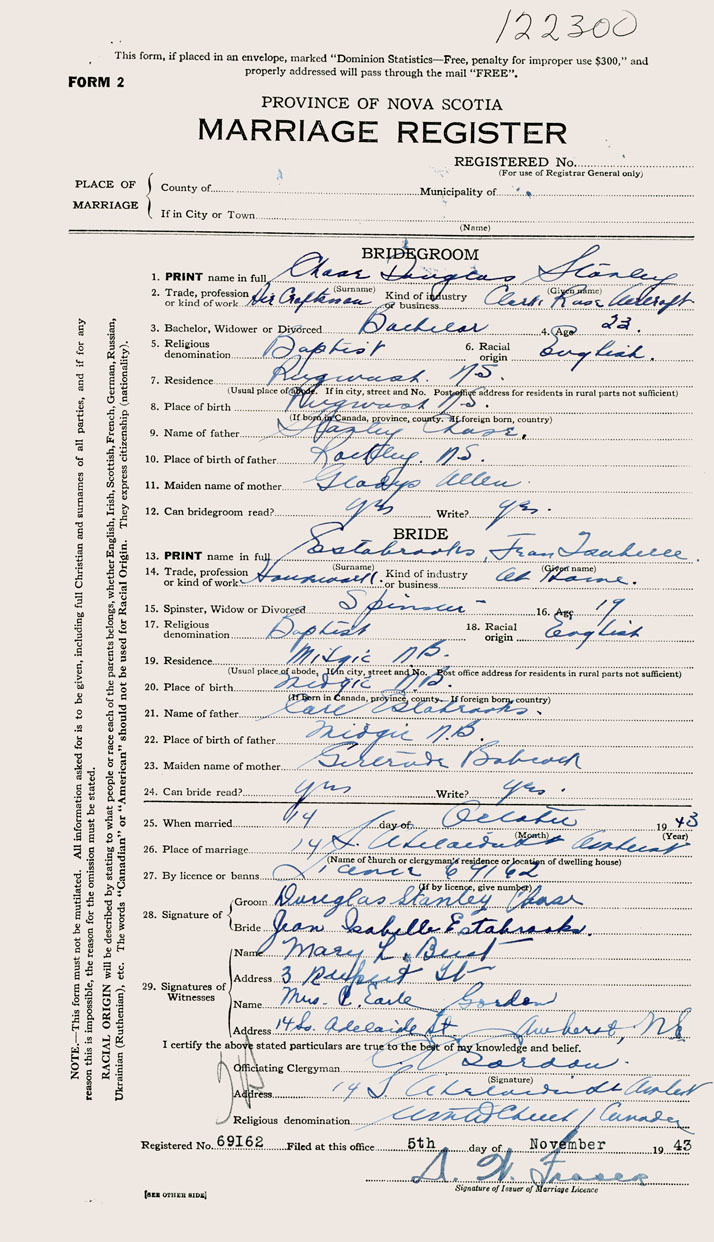 122300
This form, if placed in an envelope, marked "Dominion Statistics—Free, penalty for improper use $300," and
properly addressed will pass through the mail "FREE".
FORM 2
PROVINCE OF NOVA SCOTIA
MARRIAGE REGISTER
REGISTERED No.
(For use of Registrar General only)
PLACE OF MARRIAGE
County of Municipality of
If in City or Town
(Name)
BRIDEGROOM
1. PRINT name in full Chase Douglas Stanley
(Surname) (Given name)
2. Trade, profession or kind of work Air Craftsman Kind of industry or business Clerk Aircraft
3. Bachelor, Widower or Divorced Bachelor 4. Age 23
5. Religious denomination Baptist 6. Racial origin English.
7. Residence Pugwash. N.S.
(Usual place of abode. If in city, street and No. Post office address for residents in rural parts not sufficient)
8. Place of birth Pugwash N.S.
(If born in Canada, province, county. If foreign born, country)
9. Name of father Stanley Chase.
10. Place of birth of father N.S.
11. Maiden name of mother Gladys Allen
12. Can bridegroom read? yes Write? yes.
BRIDE
13. PRINT name in full Estabrooks, Jean Isabelle.
(Surname) (Given name)
14. Trade, profession or kind of work Housework. Kind of industry or business At Home.
15. Spinster, Widow or Divorced Spinster 16. Age 19
17. Religious denomination Baptist 18. Racial origin English
19. Residence Midgic N.B.
(Usual place of abode, If in city, street and No. Post office address for residents in rural parts not sufficient)
20. Place of birth Midgic N.B.
(If born in Canada, province, county. If foreign born, country)
21. Name of father Carl Estabrooks.
22. Place of birth of father Midgic N.B.
23. Maiden name of mother Gertrude Babcock
24. Can bride read? yes Write? yes.
25. When married 14 day of October 1943
(Month) (Year)
26. Place of marriage 14 S. Adelaide St Amherst
(Name of church or clergyman's residence or location of dwelling house)
27. By licence or banns Licence 69162
(If by licence, give number)
28. Signature of
Groom Douglas Stanley Chase
Bride Jean Isabelle Estabrooks.
29. Signatures of Witnesses
Name Mary L. Bust
Address 3 Rupert St
Name Mrs. C. Earle Gordon
Address 14 So. Adelaide St. Amherst, N.S.
I certify the above stated particulars are true to the best of my knowledge and belief.
Officiating Clergyman Gordon.
(Signature)
Address 14 S Adelaide St Amherst
Religious denomination United Church / Canada
Registered No. 69162 Filed at this office 5th day of November 1943
D. W. Fraser
Signature of Issuer of Marriage Licence
[SEE OTHER SIDE]
NOTE.—This form must not be mutilated. All information asked for is to be given, including full Christian and surnames of all parties, and if for any
reason this is impossible, the reason for the omission must be stated.
RACIAL ORIGIN will be described by stating to what people or race each of the parents belongs, whether English, Irish, Scottish, French, German, Russian,
Ukrainian (Ruthenian), etc. The words "Canadian" or "American" should not be used for Racial Origin. They express citizenship (nationality).